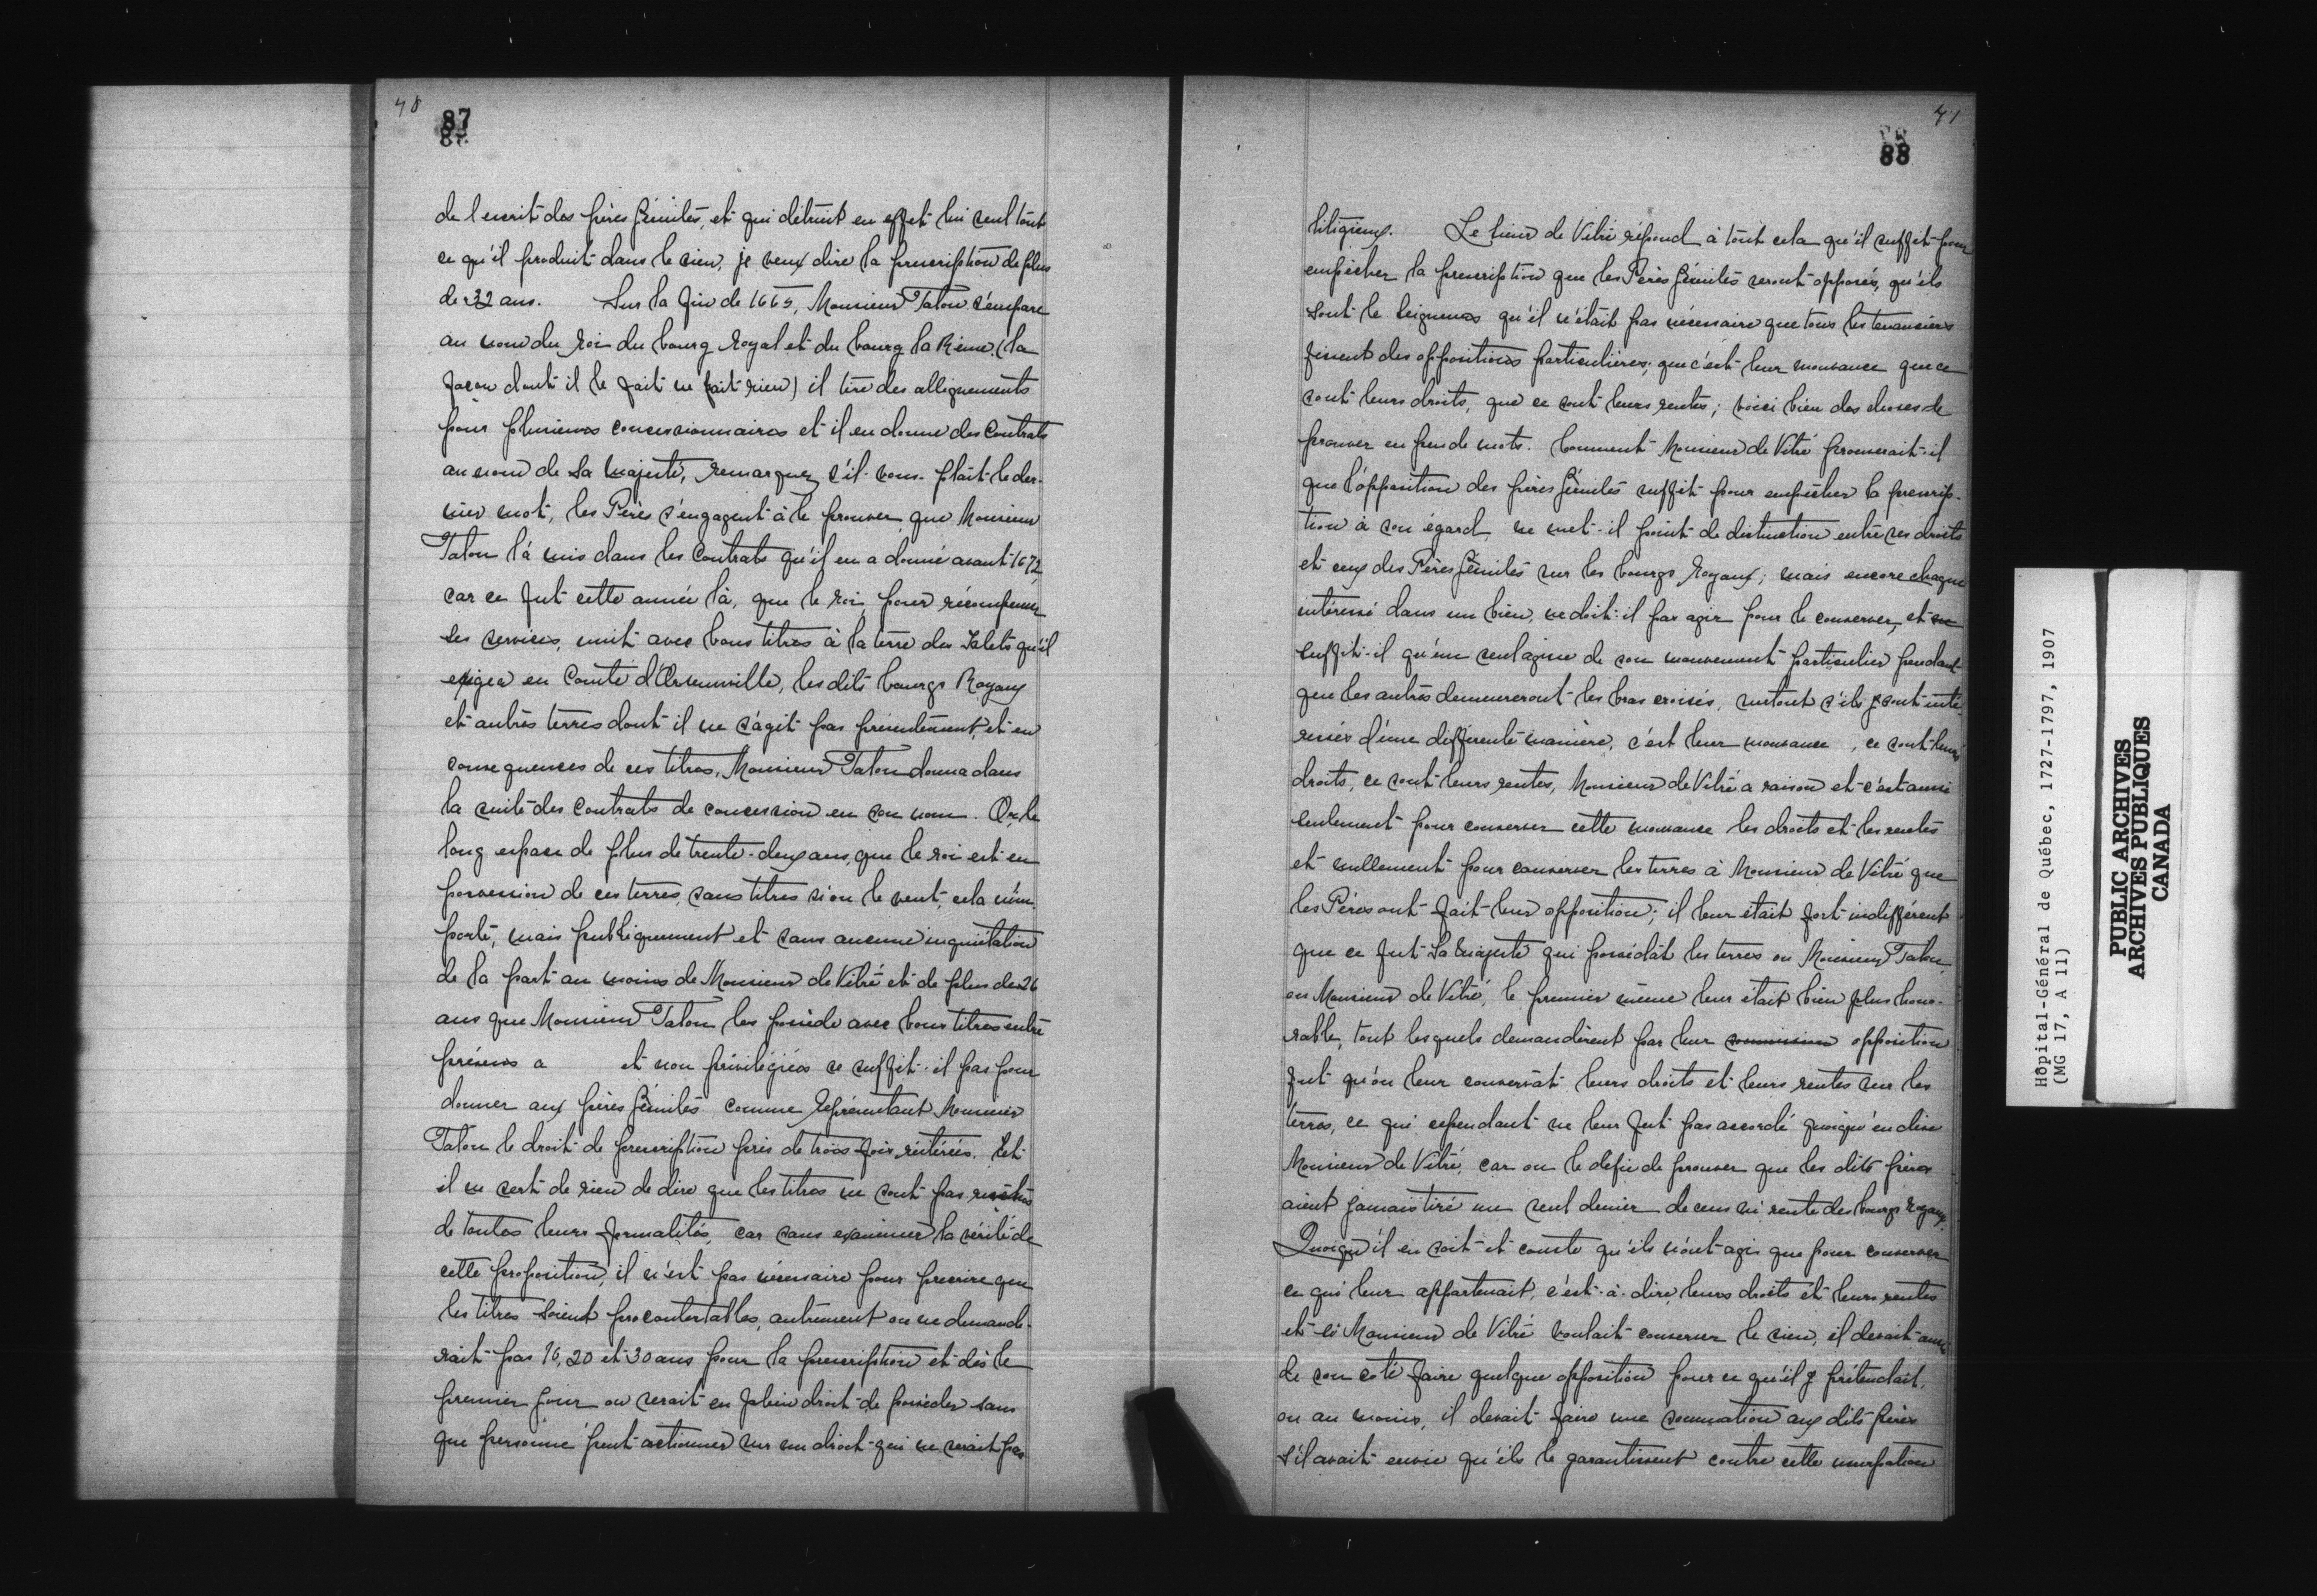 40
87
de l'ecrit des pères Jésuites, et qui détruit en effet lui seul tout
ce qu'il produit dans le sien, je veux dire la prescription de plus
de 32 ans. Sur la fin de 1665, Monsieur Talon s'empare
au nom du roi du bourg royal et du bourg la Reine, (la
façon dont il le fait ne fait rien) il tire des allignements
pour plusieurs concessionnaires et il en donne des Contrats
au nom de Sa Majesté, remarquez s'il-vous-plait le der-
nier mot, les Pères s'engagent à le prouver que Monsieur
Talon l'a mis dans les Contrats qu'il en a donné avant 1672,
car ce fut cette année là, que le roi, pour récompenser
ses services, unit avec bons titres à la terre des Islets qu'il
exigea en Comté d'Orsainville, les dits bourgs Royaux
et autres terres dont il ne s'agit pas présentement, et en
consequences de ces titres, Monsieur Talon donna dans
la suite des Contrats de concession en son nom. Or, le
long espace de plus de trente-deux ans, que le roi est en
possession de ces terres, sans titres si on le veut, cela n'im-
porte, mais publiquement et sans aucune inquiétation
de la part au moins de Monsieur de Vitré et de plus de 26
ans que Monsieur Talon les possède avec bons titres entre
présens a et non privilégiés ne suffit-il pas pour
donner aux pères Jésuites comme représentant Monsieur
Talon le droit de prescription près de trois fois réitérées. Et
il ne sert de rien de dire que les titres ne sont pas revêtus
de toutes leurs formalités, car sans examiner la vérité de
cette proposition, il n'est pas nécessaire pour prescrire que
les titres soient incontestables, autrement on ne demande-
rait pas 16, 20 et 30 ans pour la prescription et dès le
premier jour on serait en plein droit de posséder sans
que personne peut actionner sur un droit qui ne serait pas
41
88
litigieux. Le Sieur de Vitré répond à tout cela qu'il suffit pour
empêcher la prescription que les Pères Jésuites seront opposés, qu'ils
sont le Seigneurs qu'il n'était pas nécessaire que tous les tenanciers
fissent des oppositions particulières; que c'est leur mouvance que ce
sont leurs droits, que ce sont leurs rentes; voici bien des choses de
prouver en peu de mots. Comment Monsieur de Vitré prouverait-il
que l'opposition des pères Jésuites suffit pour empêcher la prescrip-
tion à son égard, ne met-il point de distinction entre ses droits
et ceux des Pères Jésuites sur les bourgs royaux; mais encore chaque
intéressé dans un bien, ne doit-il pas agir pour le conserver, et
suffit-il qu'un seul agisse de son mouvement particulier pendant
que les autres demeureront les bras croisés, surtout s'ils y sont inté-
ressés d'une différente manière, c'est leur mouvance, ce sont leurs
droits, ce sont leurs rentes, Monsieur de Vitré a raison et c'est aussi
seulement pour conserver cette mouvance les droits et les rentes
et nullement pour conserver les terres à Monsieur de Vitré que
les Pères ont fait leur opposition; il leur était fort indifférent
que ce fut Sa Majesté qui possédât les terres ou Monsieur Talon,
ou Monsieur de Vitré, le premier même leur était bien plus hono-
rable, tout lesquels demandèrent par leur opposition
fut qu'on leur conservât leurs droits et leurs rentes sur les
terres, ce qui cependant ne leur fut pas accordé quoiqu'en dise
Monsieur de Vitré, car on le defie de prouver que les dits pères
aient jamais tiré un seul denier de cens ni rente des bourgs royaux.
Quoiqu'il en soit et conste qu'ils n'ont agis que pour conserver
ce qui leur appartenait, c'est-à-dire, leurs droits et leurs rentes
et si Monsieur de Vitré voulait conserver le sien, il devait aussi
de son coté faire quelque opposition pour ce qu'il y prétendait,
ou au moins, il devait faire une sommation aux dits pères
s'il avait envie qu'ils le garantissent contre cette usurpation
Hôpital-Général de Québec, 1727-1797, 1907
(MG 17, A 11)
PUBLIC ARCHIVES
ARCHIVES PUBLIQUES
CANADA